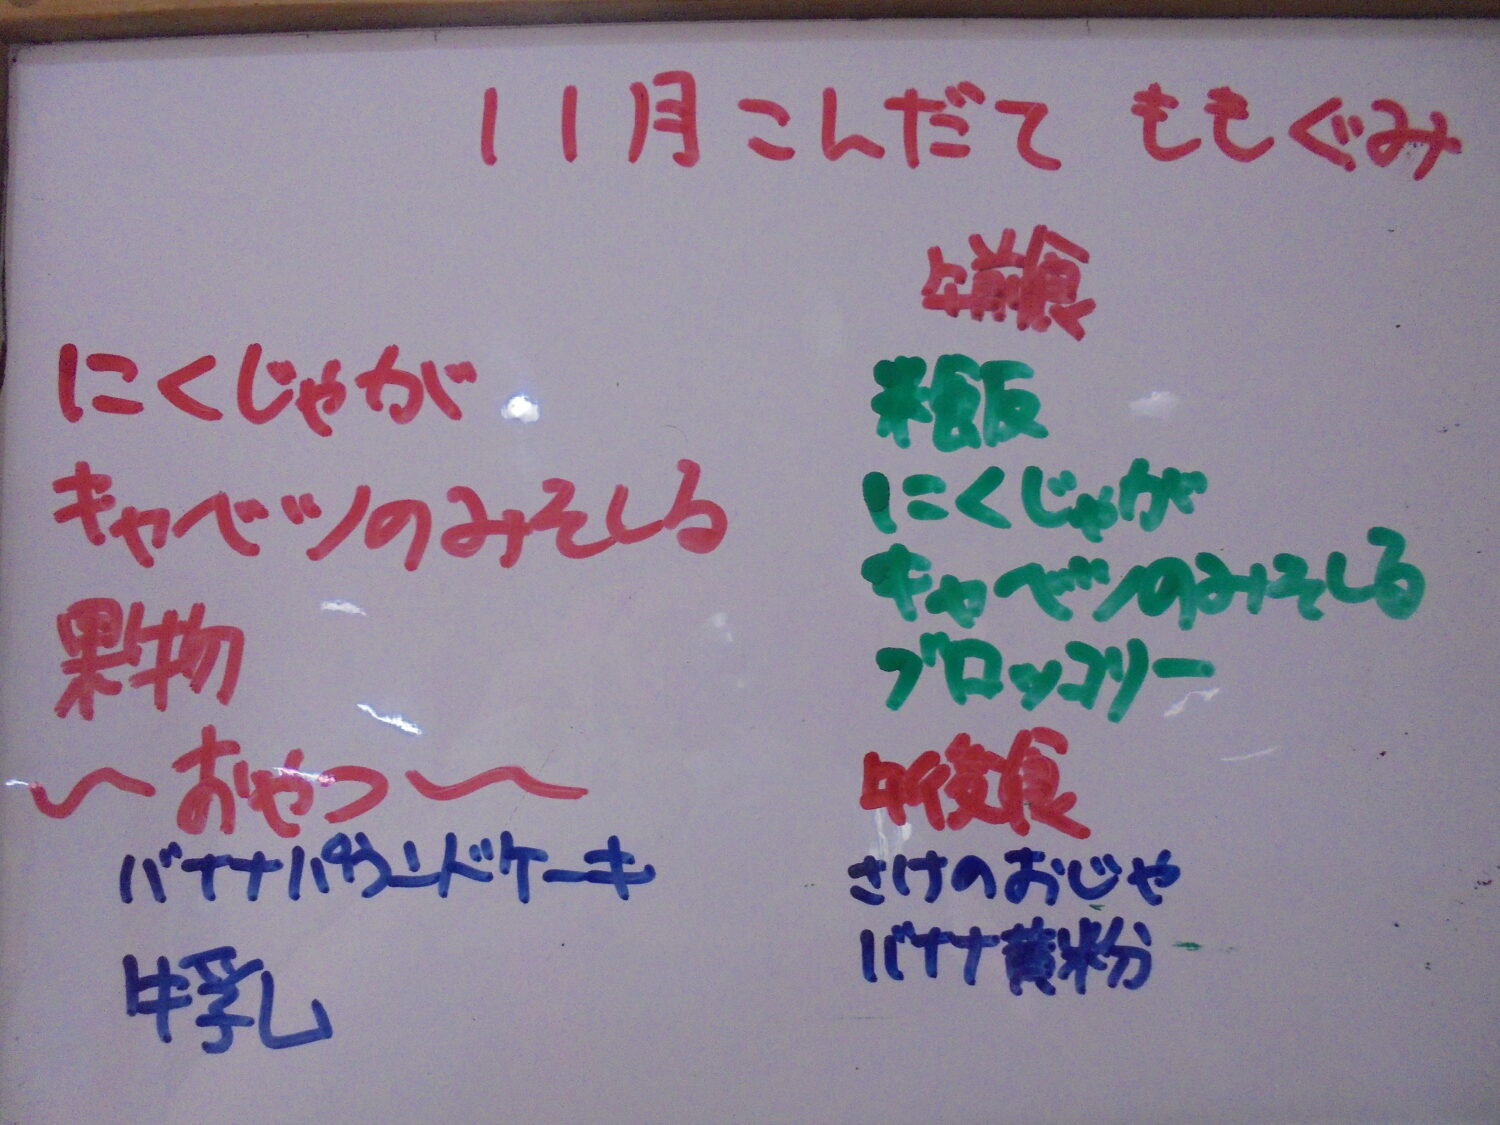 11月こんだて ももぐみ
にくじゃが
キャベツのみそしる
果物
〜おやつ〜
バナナパウンドケーキ
牛乳
午前食
米飯
にくじゃが
キャベツのみそしる
ブロッコリー
午後食
さけのおじや
バナナ黄粉